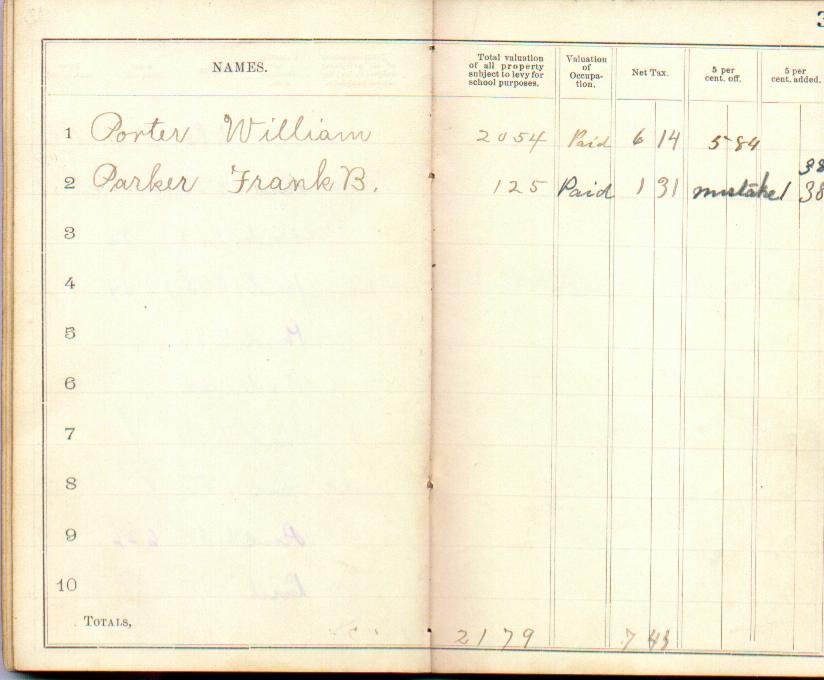 3
NAMES.
Total valuation of all property subject to levy for school purposes.
Valuation of Occupa- tion.
Net Tax.
5 per cent. off.
5 per cent. added.
1 Porter William 2054 Paid 6 14 5 84
38
2 Parker Frank B. 125 Paid 1 31 mistake 1 38
3
4
5
6
7
8
9
10
TOTALS, 2179 7